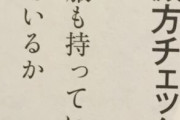 方チェック
も持って
いるか